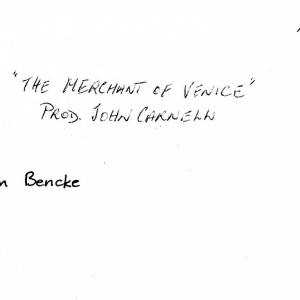 "THE MERCHANT OF VENICE"
PROD. JOHN CARNELL
Bencke